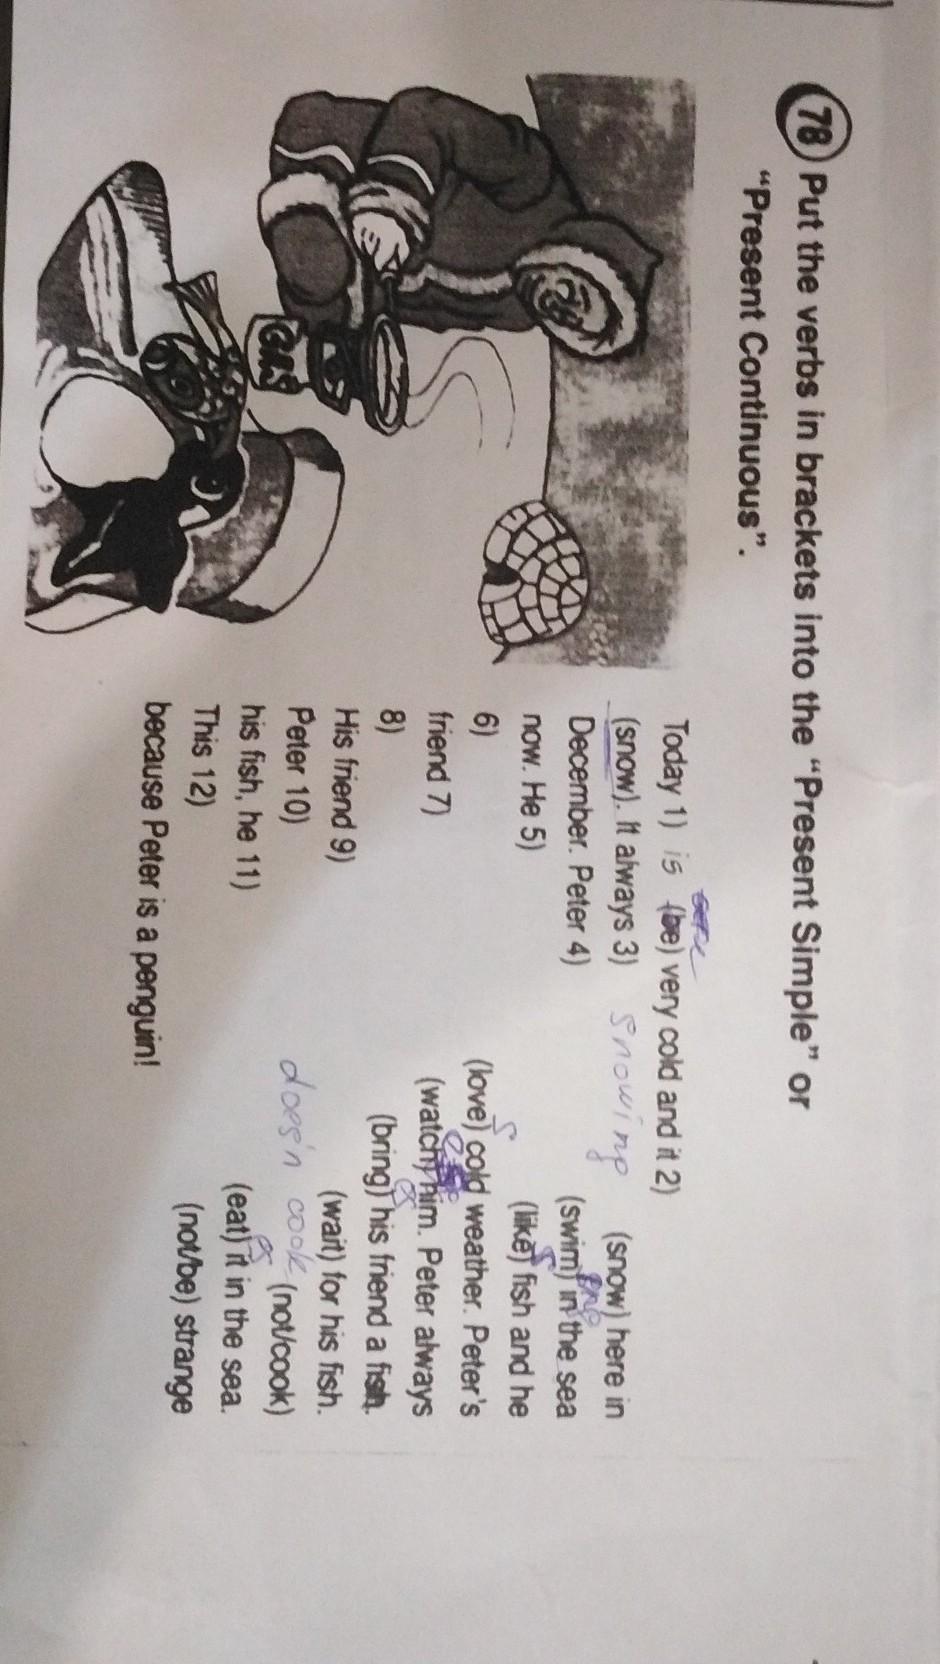 78 Put the verbs in brackets into the "Present Simple" or
"Present Continuous".
GAS
Today 1) is (be) very cold and it 2)
(snow). It always 3) snowing (snow) here in
December. Peter 4) (swim) ing in the sea
now. He 5) (like) s fish and he
6) (love) s cold weather. Peter's
friend 7) (watch) him. Peter always
8) (bring) es his friend a fish.
His friend 9) (wait) for his fish.
Peter 10) does'n cook (not/cook)
his fish, he 11) (eat) es it in the sea.
This 12) (not/be) strange
because Peter is a penguin!